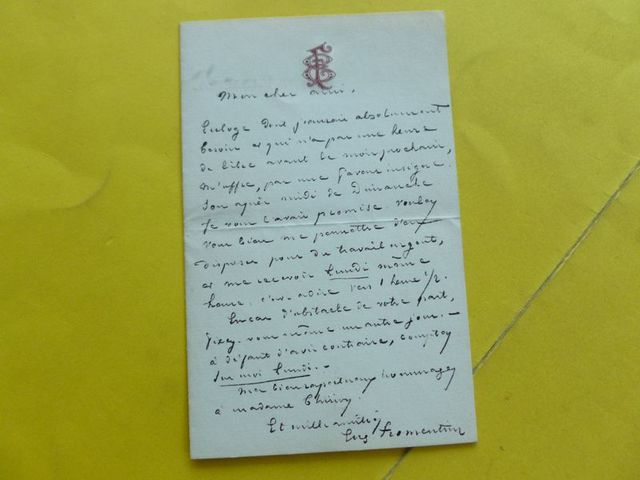 Mon cher ami,
dont j'aurais absolument
besoin et qui n'a pas une heure
de libre avant le mois prochain,
m'offre, par une faveur insigne,
son après midi de Dimanche
Je vous l'avais promise. Voulez
vous bien me permettre d'en
disposer pour du travail urgent,
et me recevoir Lundi même
heure, c'est à dire vers 1 heure 1/2.
En cas d'obstacle de votre part,
fixez-vous même un autre jour. —
à défaut d'avis contraire, comptez
sur moi Lundi. —
mes bien respectueux hommages
à madame
Et mille amitiés
Eug Fromentin